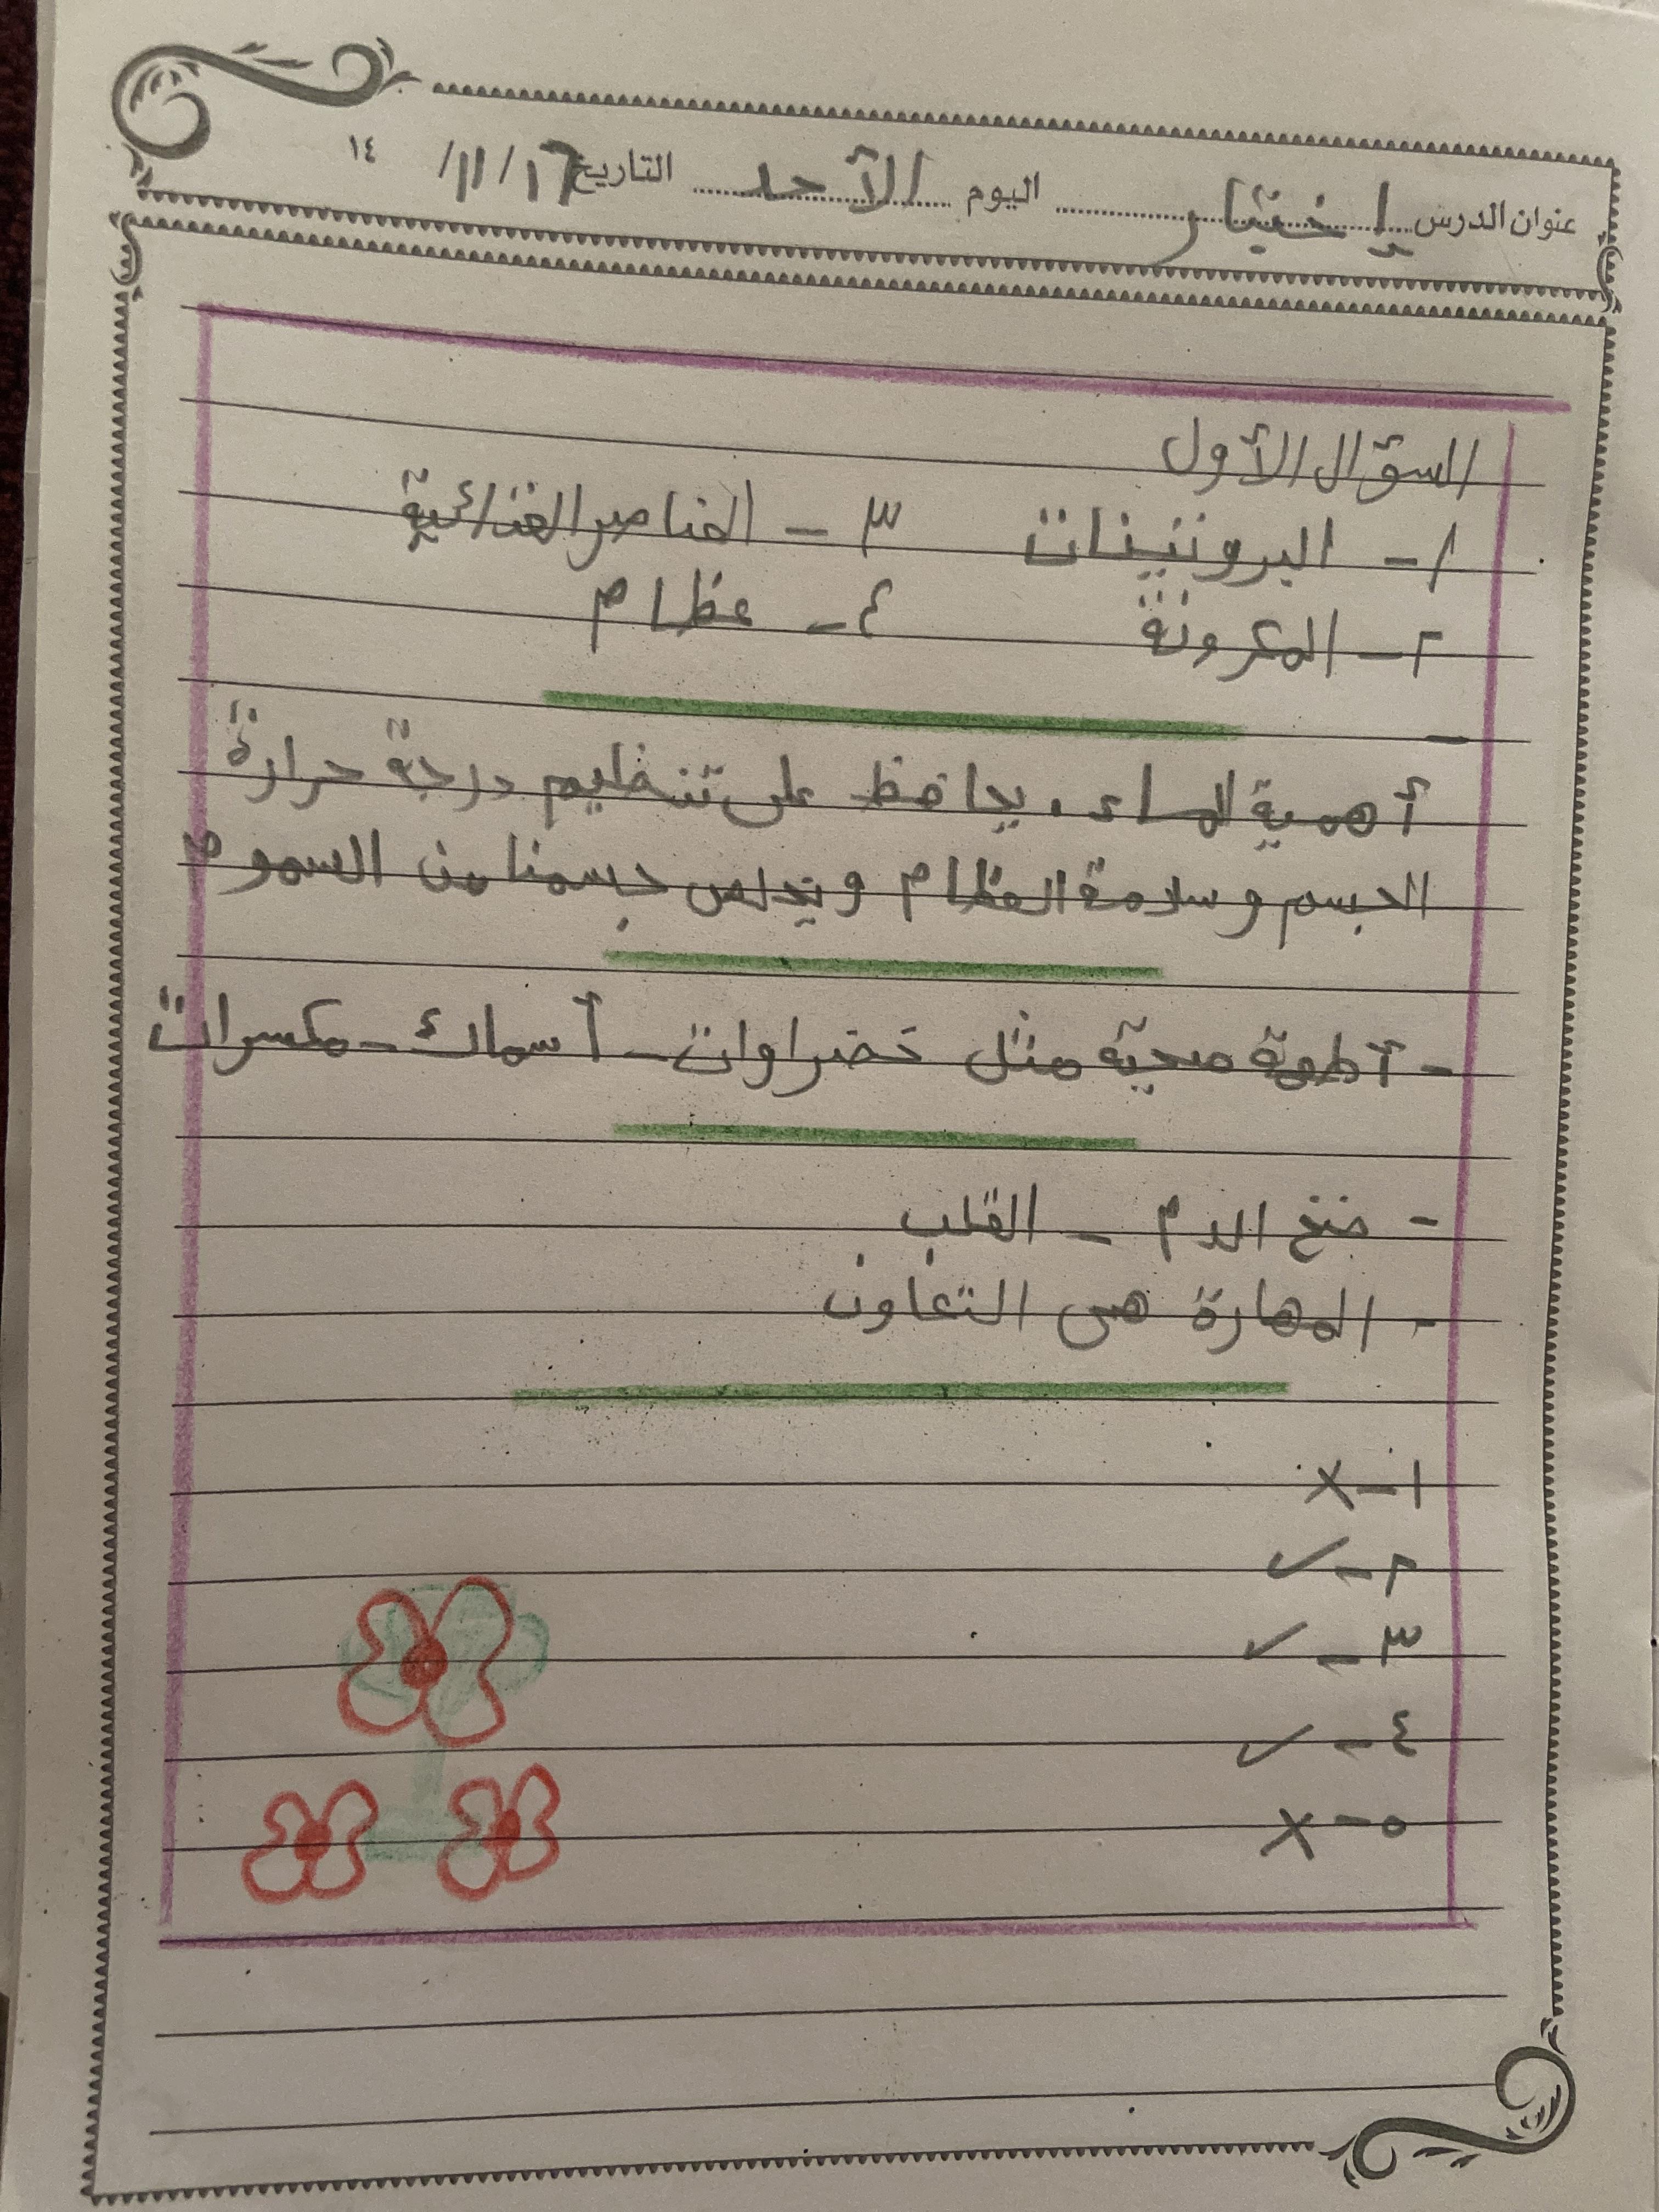 عنوان الدرس إختبار اليوم الأحد التاريخ ١٦/١١/ ١٤
السؤال الأول
١- البروتينات ٣- العناصر الغذائية
٢- المكرونة ٤- عظام
أهمية الماء، يحافظ على تنظيم درجة حرارة
الجسم وسلامة العظام ويخلص جسمنا من السموم
- أطعمة صحية مثل خضراوات - أسماك - مكسرات
- ضخ الدم - القلب
- المهارة هي التعاون
١- ×
٢- ✓
٣- ✓
٤- ✓
٥- ×